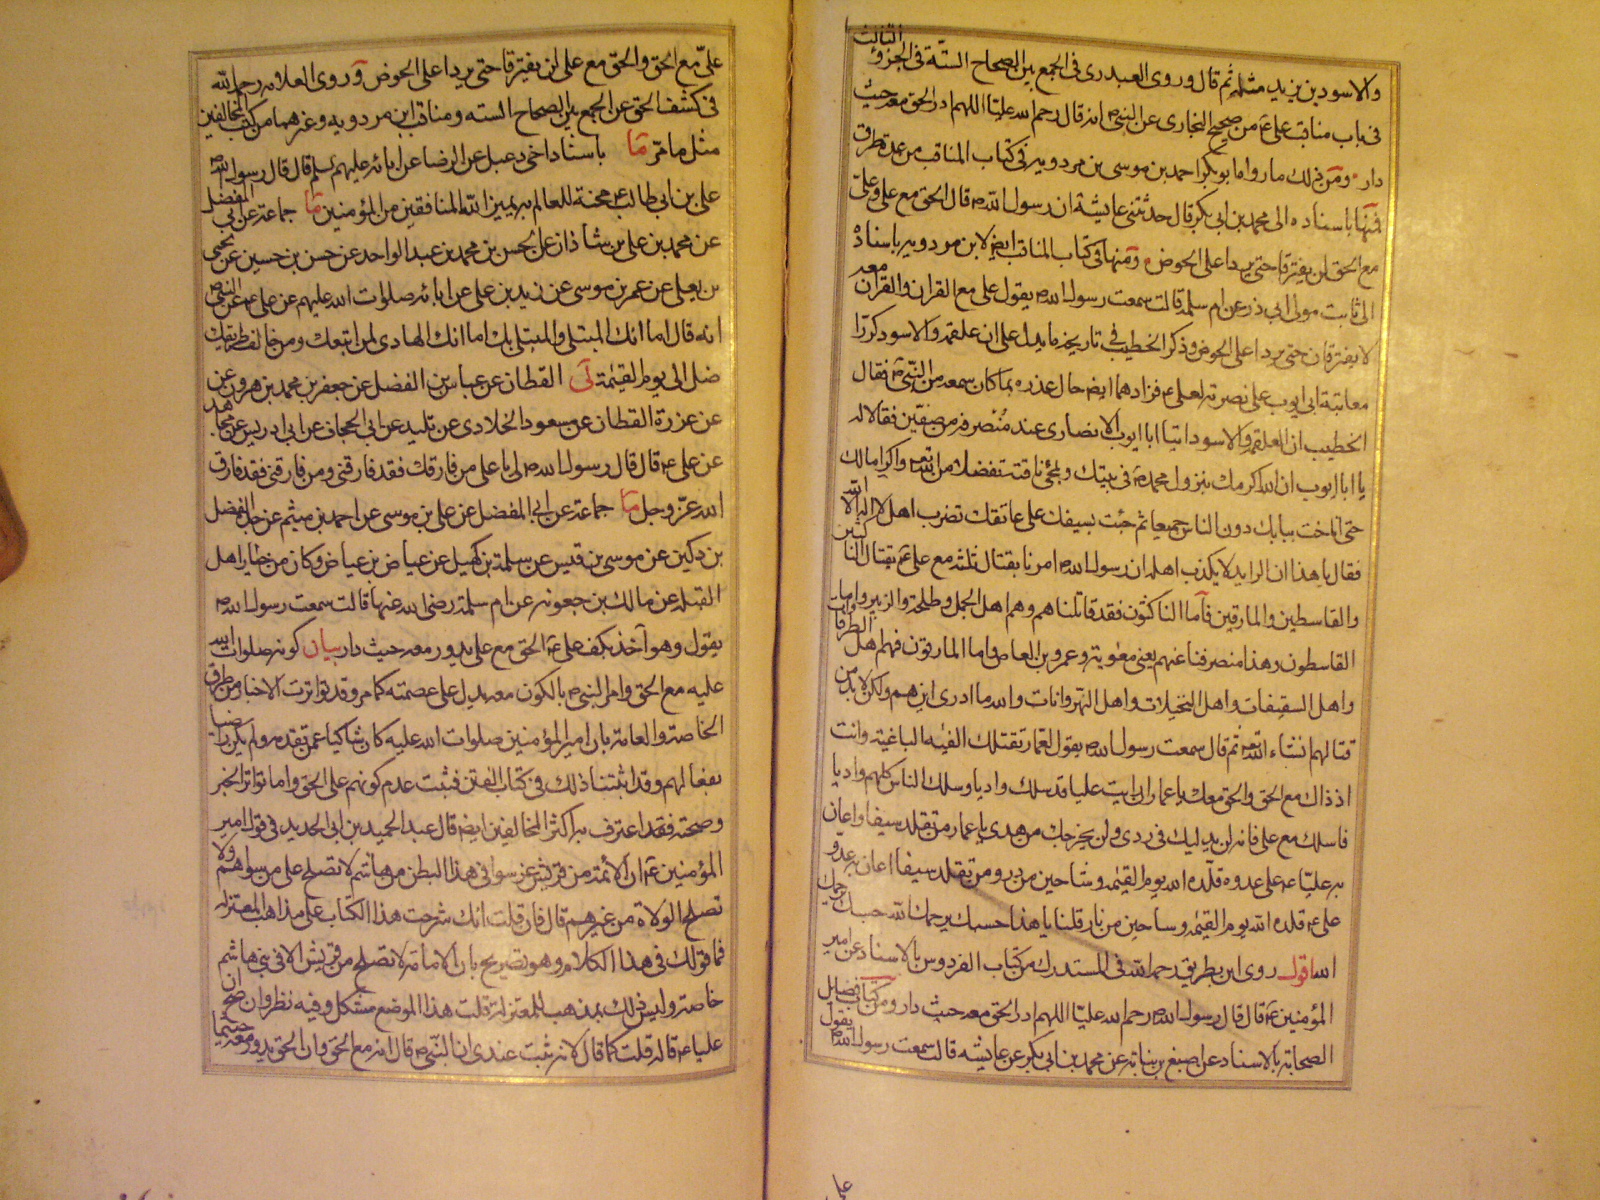 والاسود بن يزيد مثله ثم قال وروى العبدرى فى الجمع بين الصحاح الستة فى الجزؤ الثالث
فى باب مناقب على ع من صحيح البخارى عن النبى ص انه قال رحم الله عليا اللهم ادر الحق معه حيث
دار ومن ذلك ما رواه ابو بكر احمد بن موسى بن مردويه فى كتاب المناقب من عدة طرق
فمنها باسناده الى محمد بن ابى بكر قال حدثتنى عايشة ان رسول الله ص قال الحق مع على وعلى
مع الحق لن يفترقا حتى يردا على الحوض ومنها فى كتاب المناقب ايض لابن مردويه باسناده
الى ثابت مولى ابى ذر عن ام سلمة قالت سمعت رسول الله ص يقول على مع القران والقران معه
لا يفترقان حتى يردا على الحوض وذكر الخطيب فى تاريخه ما يدل على ان علقمة والاسود كررا
معاتبة ابى ايوب على نصرته لعلى ع فزادهما ايض حال عذره بما كان سمعه من النبى ص فقال
الخطيب ان العلقمة والاسود اتيا ابا ايوب الانصارى عند منصرفه من صفين فقالا له
يا ابا ايوب ان الله اكرمك بنزول محمد ص فى بيتك وبمجئ ناقته تفضلا من الله تعه واكراما لك
حتى اناخت ببابك دون الناس جميعا ثم جئت بسيفك على عاتقك تضرب اهل لا اله الا الله
فقال يا هذا ان الرايد لا يكذب اهله ان رسول الله ص امرنا بقتال ثلثة مع على ع بقتال الناكثين
والقاسطين والمارقين فاما الناكثون فقد قاتلناهم وهم اهل الجمل وطلحة والزبير واما
القاسطون وهذا منصرفنا عنهم يعنى معوية وعمرو بن العاص واما المارقون فهم اهل الطرقات
واهل السقيفات واهل النخيلات واهل النهروانات والله ما ادرى اين هم ولكن لا بد من
قتالهم انشاء الله تعه ثم قال سمعت رسول الله ص يقول لعمار تقتلك الفئه الباغية وانت
اذ ذاك مع الحق والحق معك يا عمار ان رايت عليا قد سلك واديا وسلك الناس كلهم واديا
فاسلك مع على فانه لن يدليك فى ردى ولن يخرجك من هدى يا عمار من تقلد سيفا واعان
به عليا ع على عدوه قلده الله يوم القيمة وشاحين من در ومن تقلد سيفا اعان به عدو
على ع قلده الله يوم القيمه وشاحين من نار قلنا يا هذا حسبك يرحمك الله حسبك يرحمك
الله اقول روى ابن بطريق رحمه الله فى المستدرك من كتاب الفردوس بالاسناد عن امير
المؤمنين ع قال قال رسول الله ص رحم الله عليا اللهم ادر الحق معه حيث دار ومن كتاب فضايل
الصحابة بالاسناد عن اصبغ بن نباتة عن محمد بن ابى بكر عن عايشه قالت سمعت رسول الله ص يقول
على
على مع الحق والحق مع على لن يفترقا حتى يردا على الحوض وروى العلامه رحمه الله
فى كشف الحق عن الجمع بين الصحاح السته ومناقب ابن مردويه وغيرهما من كتب المخالفين
مثل ما مر ما باسناد اخى دعبل عن الرضا عن ابائه عليهم سلم قال قال رسول الله ص
على بن ابى طالب ع محنة للعالم به يميز الله المنافقين من المؤمنين ما جماعة عن ابى المفضل
عن محمد بن على بن شاذان عن الحسن بن محمد بن عبد الواحد عن حسن بن حسين عن يحيى
بن يعلى عن عمر بن موسى عن زيد بن على عن ابائه صلوات الله عليهم عن على ع عن النبى ص
انه قال اما انك المبتلى والمبتلى بك اما انك الهادى لمن اتبعك ومن خالف طريقك
ضل الى يوم القيمة لى القطان عن عباس بن الفضل عن جعفر بن محمد بن هرون عن
عن عزرة القطان عن مسعود الخلادى عن تليد عن ابى الحجاف عن ابى ادريس عن مجاهد
عن على ع قال قال رسول الله ص لى يا على من فارقك فقد فارقنى ومن فارقنى فقد فارق
الله عز وجل ما جماعة عن ابى المفضل عن على بن موسى عن احمد بن ميثم عن جده الفضل
بن دكين عن موسى بن قيس عن سلمة بن كهيل عن عياض بن عياض وكان من خيار اهل
القبله عن مالك بن جعونه عن ام سلمة رضى الله عنها قالت سمعت رسول الله ص
يقول وهو آخذ بكف على ع الحق مع على يدور معه حيث دار بيان كونه صلوات الله
عليه مع الحق وامر النبى ص بالكون معه يدل على عصمته كما مر وقد تواترت الاخبار من طرق
الخاصة والعامة بان امير المؤمنين صلوات الله عليه كان شاكيا عمن تقدمه ولم يكن راضيا
بفعالهم وقد اثبتنا ذلك فى كتاب الفتن فثبت عدم كونهم على الحق واما تواتر الخبر
وصحته فقد اعترف به اكثر المخالفين ايض قال عبد الحميد بن ابى الحديد فى قول امير
المؤمنين ع ان الائمة من قريش غرسوا فى هذا البطن من هاشم لا تصلح على من سواهم ولا
تصلح الولاة من غيرهم قال فان قلت انك شرحت هذا الكتاب على مذاهب المعتزله
فما قولك فى هذا الكلام وهو تصريح بان الامامة لا تصلح من قريش الا فى بنى هاشم
خاصة وليس ذلك بمذهب للمعتزلة قلت هذا الموضع مشكل وفيه نظر وان صح ان
عليا ع قاله قلت كما قال لانه ثبت عندى ان النبى ص قال انه مع الحق وان الحق يدور معه حيثما